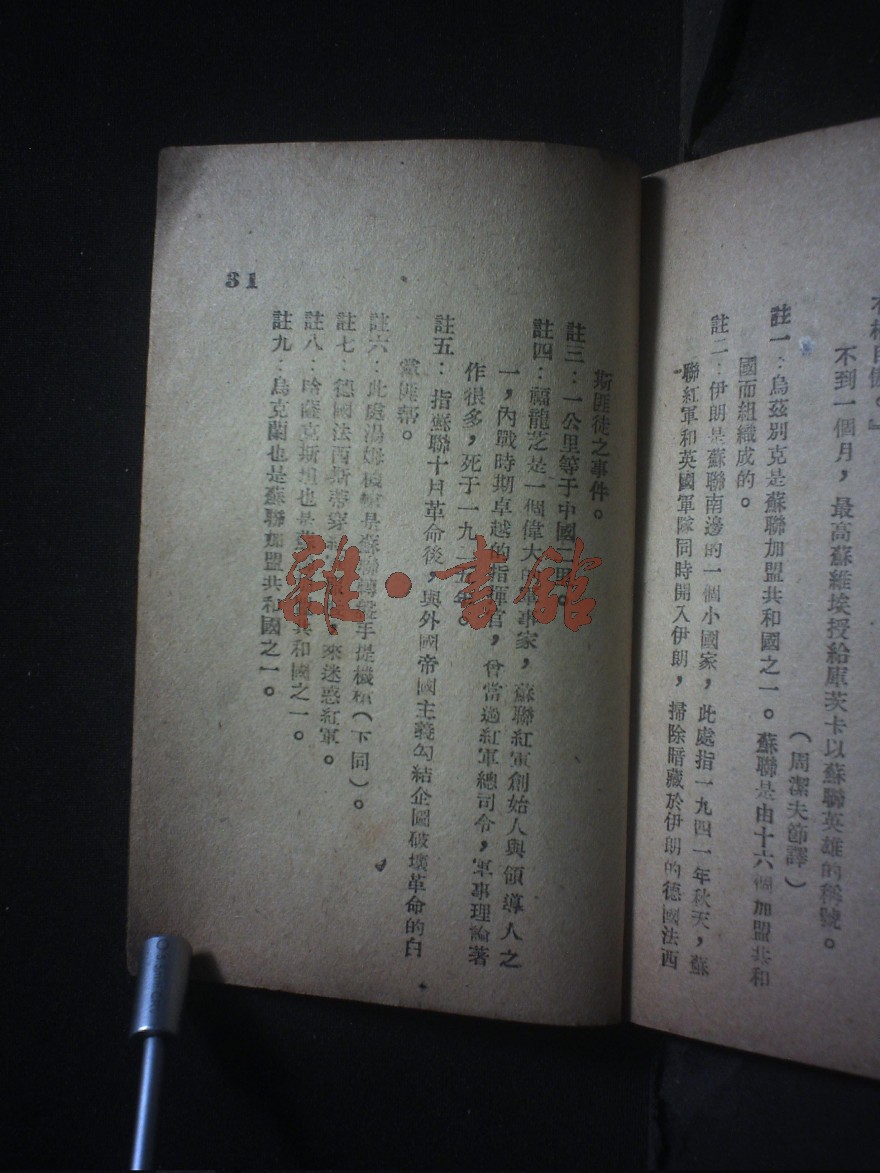 不到一個月，最高蘇維埃授給庫茨卡以蘇聯英雄的稱號。
（周潔夫節譯）
註一：烏茲別克是蘇聯加盟共和國之一。蘇聯是由十六個加盟共和
國而組織成的。
註二：伊朗是蘇聯南邊的一個小國家，此處指一九四一年秋天，蘇
聯紅軍和英國軍隊同時開入伊朗，掃除暗藏於伊朗的德國法西
斯匪徒之事件。
註三：一公里等于中國二里。
註四：福龍芝是一個偉大的軍事家，蘇聯紅軍創始人與領導人之
一，內戰時期卓越的指揮官，曾當過紅軍總司令，軍事理論著
作很多，死于一九二五年。
註五：指蘇聯十月革命後，與外國帝國主義勾結企圖破壞革命的白
黨匪幫。
註六：此處湯姆機槍是蘇聯轉盤手提機槍（下同）。
註七：德國法西斯蒂穿，來迷惑紅軍。
註八：哈薩克斯坦也是共和國之一。
註九：烏克蘭也是蘇聯加盟共和國之一。
31
雜·書館